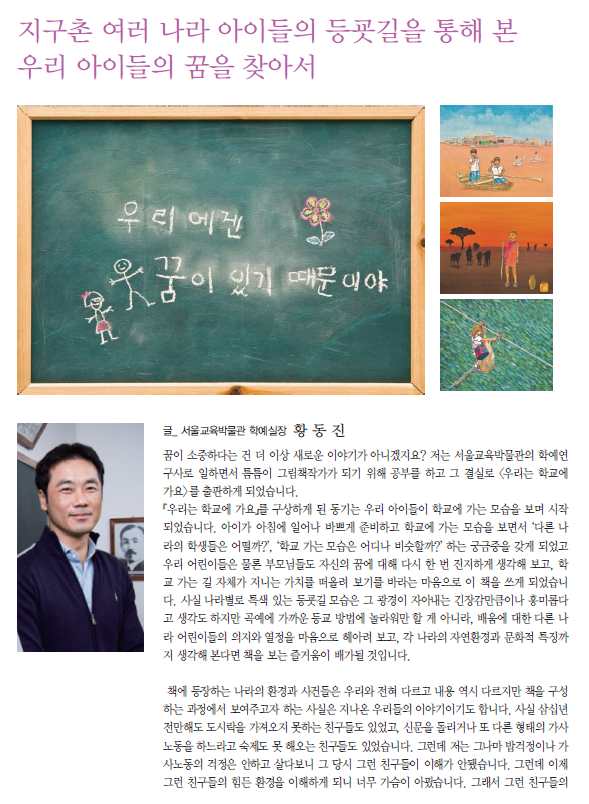 지구촌 여러 나라 아이들의 등굣길을 통해 본
우리 아이들의 꿈을 찾아서
우리에겐
꿈이 있기 때문이야
글_ 서울교육박물관 학예실장 황동진
꿈이 소중하다는 건 더 이상 새로운 이야기가 아니겠지요? 저는 서울교육박물관의 학예연
구사로 일하면서 틈틈이 그림책작가가 되기 위해 공부를 하고 그 결실로 〈우리는 학교에
가요〉를 출판하게 되었습니다.
『우리는 학교에 가요』를 구상하게 된 동기는 우리 아이들이 학교에 가는 모습을 보며 시작
되었습니다. 아이가 아침에 일어나 바쁘게 준비하고 학교에 가는 모습을 보면서 ‘다른 나
라의 학생들은 어떨까?’, ‘학교 가는 모습은 어디나 비슷할까?’ 하는 궁금증을 갖게 되었고
우리 어린이들은 물론 부모님들도 자신의 꿈에 대해 다시 한 번 진지하게 생각해 보고, 학
교 가는 길 자체가 지니는 가치를 떠올려 보기를 바라는 마음으로 이 책을 쓰게 되었습니
다. 사실 나라별로 특색 있는 등굣길 모습은 그 광경이 자아내는 긴장감만큼이나 흥미롭다
고 생각도 하지만 곡예에 가까운 등교 방법에 놀라워만 할 게 아니라, 배움에 대한 다른 나
라 어린이들의 의지와 열정을 마음으로 헤아려 보고, 각 나라의 자연환경과 문화적 특징까
지 생각해 본다면 책을 보는 즐거움이 배가될 것입니다.
책에 등장하는 나라의 환경과 사건들은 우리와 전혀 다르고 내용 역시 다르지만 책을 구성
하는 과정에서 보여주고자 하는 사실은 지나온 우리들의 이야기이기도 합니다. 사실 삼십년
전만해도 도시락을 가져오지 못하는 친구들도 있었고, 신문을 돌리거나 또 다른 형태의 가사
노동을 하느라고 숙제도 못 해오는 친구들도 있었습니다. 그런데 저는 그나마 밥걱정이나 가
사노동의 걱정은 안하고 살다보니 그 당시 그런 친구들이 이해가 안됐습니다. 그런데 이제
그런 친구들의 힘든 환경을 이해하게 되니 너무 가슴이 아팠습니다. 그래서 그런 친구들의